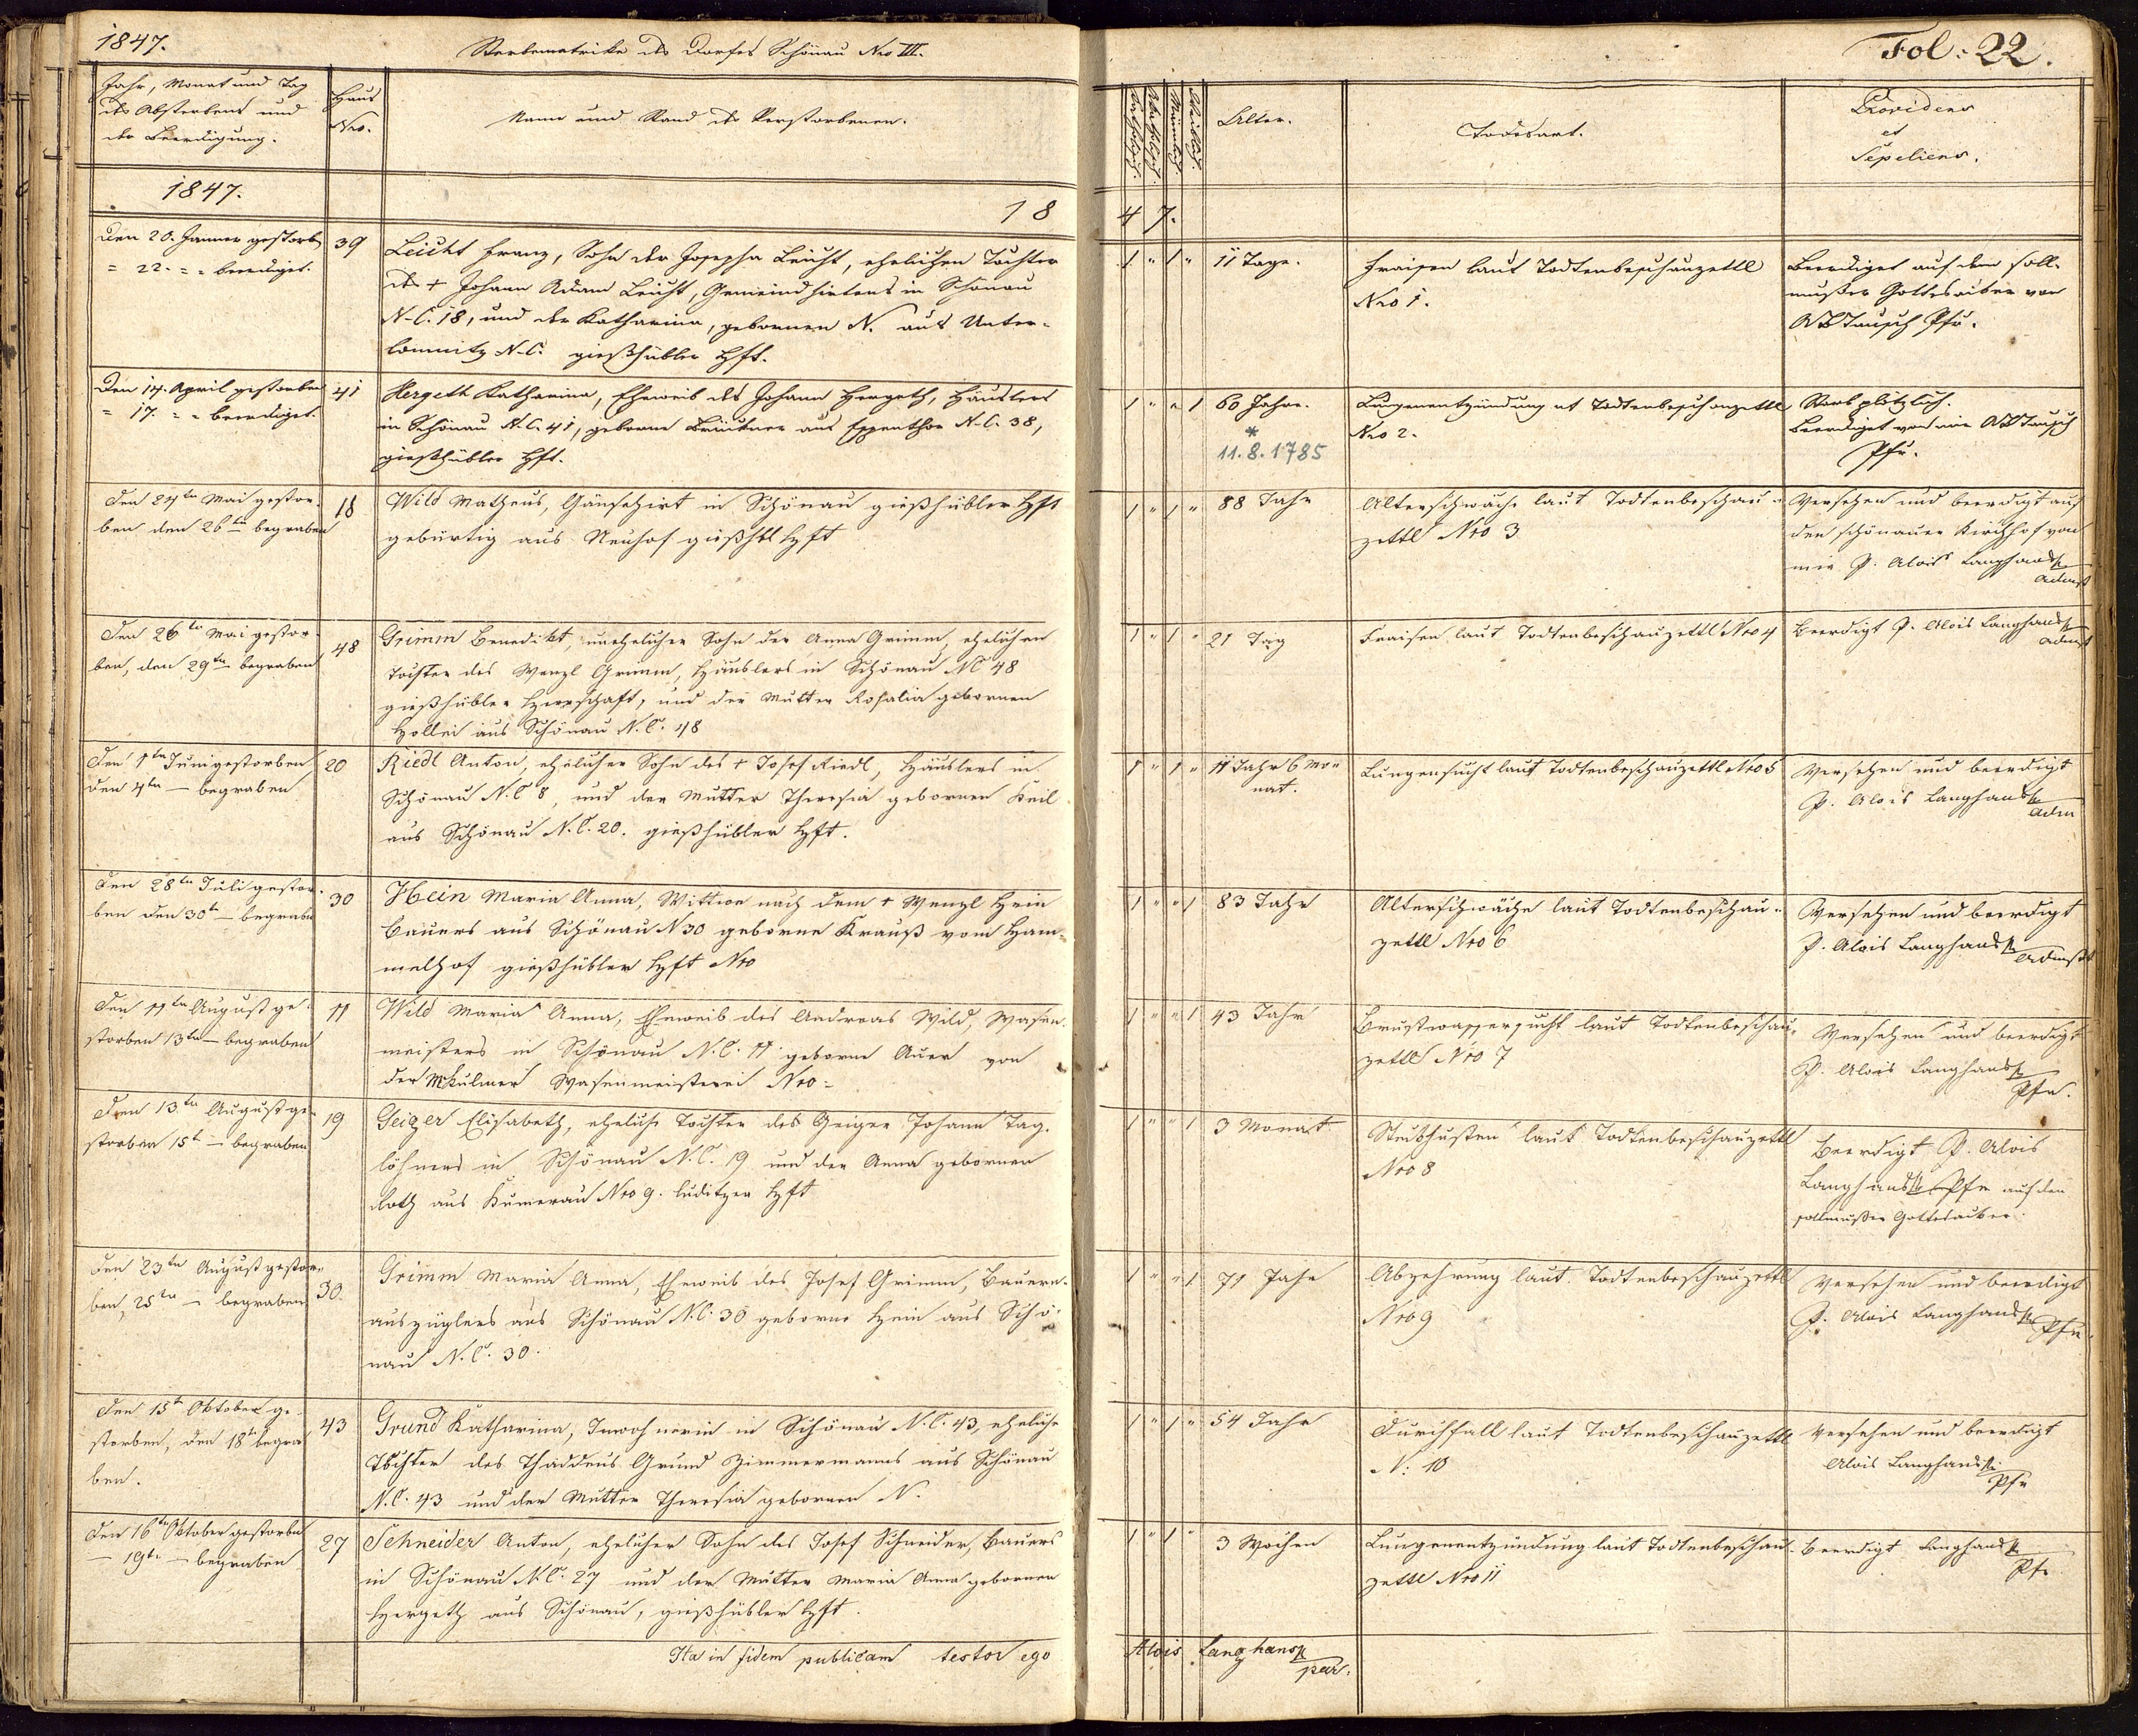 1847.
Sterbematrike des Dorfes Schönau Nro III.
Fol: 22.
Jahr, Monat und Tag
des Absterbens und
der Beerdigung.
Haus
Nro.
Name und Stand des Verstorbenen.
Katholisch.
Männlich.
Weiblich.
Alter.
Todesart.
Providens
et
Sepeliens.
1847.
18
47.
Den 20. Jänner gestorb.
= 22. = = beerdiget.
39
Leicht Franz, Sohn der Josepha Leicht, ehelichen Tochter
des + Johann Adam Leicht, Gemeindhirtens in Schönau
N-C. 18, und der Katharina, gebornen N. aus Unter-
lomnitz N-C. gießhübler Hft.
1 " 1 "
11 Tage.
Fraisen laut Todtenbeschauzettl
Nro 1.
Beerdiget auf dem soll-
mußer Gottesacker von
Tausch Pfr.
Den 14. April gestorben
= 17. = = beerdiget.
41
Hergeth Katharina, Eheweib des Johann Hergeth, Häuslers
in Schönau N.C. 41, geborne Brückner aus Espenthor N-C. 38,
gießhübler Hft.
1 " " 1
60 Jahre.
*
11.8.1785
Lungenentzündung ut Todtenbeschauzettl
Nro 2.
Starb plötzlich.
Beerdiget von mir Tausch
Pfr.
Den 24ten Mai gestor-
ben den 26ten begraben
18
Wild Matheus, Gänsehirt in Schönau gießhübler Hft
gebürtig aus Neuhof gießhbl Hft
1 " 1 "
88 Jahr
Altersschwäche laut Todtenbeschau-
zettl Nro 3
Versehen und beerdigt auf
den schönauer Kirchhof von
mir P. Alois Langhans
Admst
Den 26ten Mai gestor-
ben, den 29ten begraben
48
Grimm Benedikt, unehelicher Sohn der Anna Grimm, ehelichen
Tochter des Wenzl Grimm, Häuslers in Schönau NC 48
gießhübler Herrschaft, und der Mutter Rosalia gebornen
Hollei aus Schönau N.C. 48
1 " 1 "
21 Tag
Fraisen laut Todtenbeschauzettl Nro 4
Beerdigt P. Alois Langhans
Admst
Den 1ten Juni gestorben
den 4ten — begraben
20
Riedl Anton, ehelicher Sohn des + Josef Riedl, Häuslers in
Schönau N.C 8, und der Mutter Theresia gebornen Keil
aus Schönau N.C. 20. gießhübler Hft.
1 " 1 "
11 Jahr 6 Mo-
nat.
Lungensucht laut Todtenbeschauzettl Nro 5
Versehen und beerdigt
P. Alois Langhans
Adm
Den 28ten Juli gestor-
ben den 30t — begraben
30
Hein Maria Anna, Wittwe nach dem + Wenzl Hein
Bauers aus Schönau N 30 geborne Krauß vom Ham-
melhof gießhübler Hft Nro
1 " " 1
83 Jahr
Altersschwäche laut Todtenbeschau-
zettl Nro 6
Versehen und beerdigt
P. Alois Langhans
Admst
Den 11ten August ge-
storben 13ten — begraben
11
Wild Maria Anna, Eheweib des Andreas Wild, Wasen-
meisters in Schönau N.C. 11 geborne Auer von
der Mkulmer Wasenmeisterei Nro =
1 " " 1
43 Jahr
Brustwassersucht laut Todtenbeschau-
zettl Nro 7
Versehen und beerdigt
P. Alois Langhans
Pfr.
Den 13ten August ge-
storben 15t — begraben
19
Geiger Elisabeth, eheliche Tochter des Geiger Johann Tag-
löhners in Schönau N.C. 19 und der Anna gebornen
Roth aus Kumerau Nro 9. luditzer Hft
1 " " 1
3 Monat
Stickhusten laut Todtenbeschauzettl
Nro 8
Beerdigt P. Alois
Langhans Pfr auf den
sollmußer Gottesacker.
Den 23ten August gestor-
ben, 25ten — begraben
30.
Grimm Maria Anna, Eheweib des Josef Grimm, Bauern-
auszüglers aus Schönau N.C. 30 geborne Hein aus Schö-
nau N.C. 30.
1 " " 1
71 Jahr
Abzehrung laut Todtenbeschauzettl
Nro 9
Versehen und beerdigt
P. Alois Langhans Pfr.
Den 15t Oktober ge-
storben, den 18t begra-
ben.
43
Grund Katharina, Inwohnerin in Schönau N.C. 43, eheliche
Tochter des Thaddeus Grund Zimmermanns aus Schönau
N.C. 43 und der Mutter Theresia gebornen N.
1 " 1 "
54 Jahr
Durchfall laut Todtenbeschauzettl
N: 10
Versehen und beerdigt
Alois Langhans
Pfr
Den 16ten Oktober gestorben
— 19t. — begraben
27
Schneider Anton, ehelicher Sohn des Josef Schneider, Bauers
in Schönau N.C. 27 und der Mutter Maria Anna gebornen
Hergeth aus Schönau, gießhübler Hft.
1 " 1 "
3 Wochen
Lungenentzündung laut Todtenbeschau-
zettl Nro 11
Beerdigt Langhans
Pfr
Ita in fidem publicam testor ego
Alois Langhans
par.